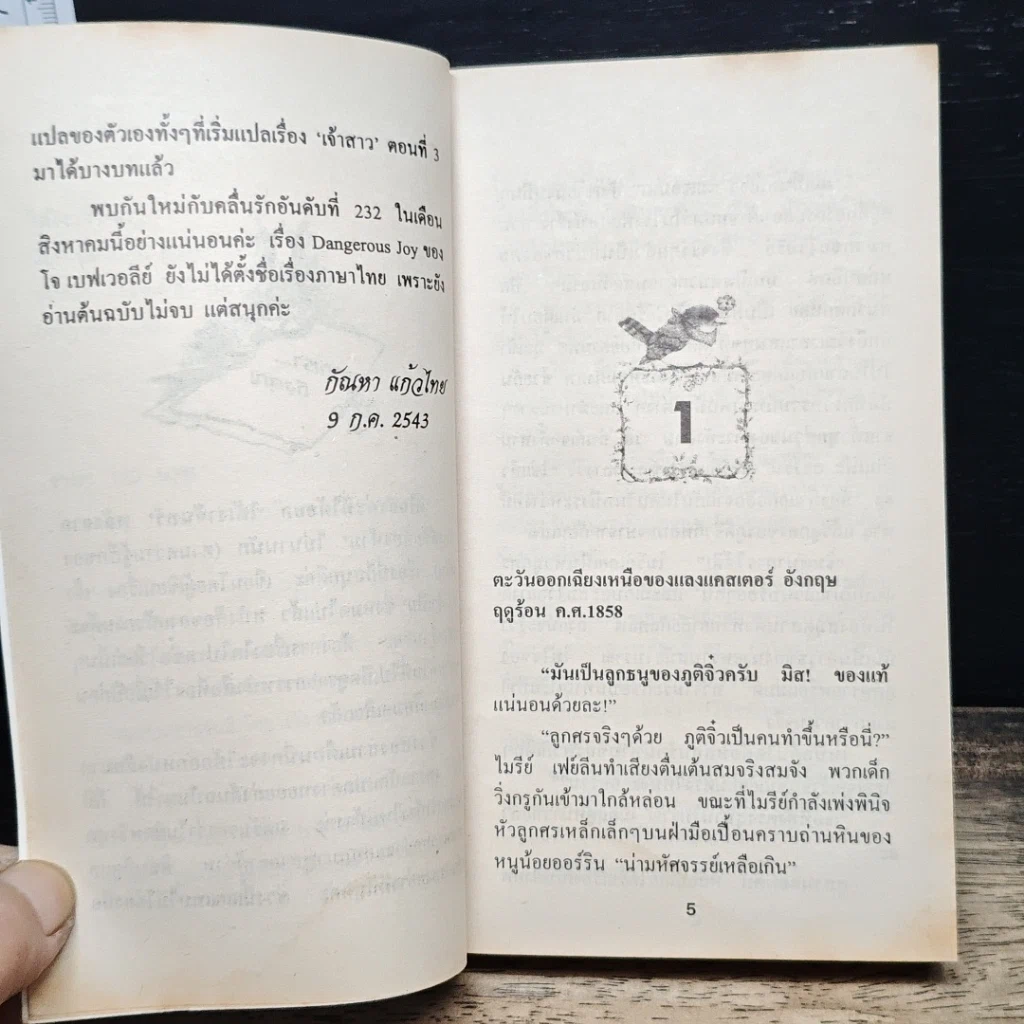 แปลของตัวเองทั้งๆที่เริ่มแปลเรื่อง ‘เจ้าสาว’ ตอนที่ 3
มาได้บางบทแล้ว
พบกันใหม่กับคลื่นรักอันดับที่ 232 ในเดือน
สิงหาคมนี้อย่างแน่นอนค่ะ เรื่อง Dangerous Joy ของ
โจ เบฟเวอลีย์ ยังไม่ได้ตั้งชื่อเรื่องภาษาไทย เพราะยัง
อ่านต้นฉบับไม่จบ แต่สนุกค่ะ
กัณหา แก้วไทย
9 ก.ค. 2543
1
ตะวันออกเฉียงเหนือของแลงแคสเตอร์ อังกฤษ
ฤดูร้อน ค.ศ.1858
“มันเป็นลูกธนูของภูติจิ๋วครับ มิส! ของแท้
แน่นอนด้วยละ!”
“ลูกศรจริงๆด้วย ภูติจิ๋วเป็นคนทำขึ้นหรือนี่?”
ไมรีย์ เฟย์ลีนทำเสียงตื่นเต้นสมจริงสมจัง พวกเด็ก
วิ่งกรูกันเข้ามาใกล้หล่อน ขณะที่ไมรีย์กำลังเพ่งพินิจ
หัวลูกศรเหล็กเล็กๆบนฝ่ามือเปื้อนคราบถ่านหินของ
หนูน้อยออร์ริน “น่ามหัศจรรย์เหลือเกิน”
5